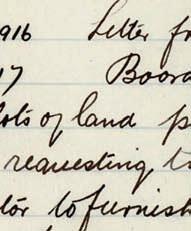 1916 Letter fr
17 Board
lots of land p
requesting t
tor to furnish